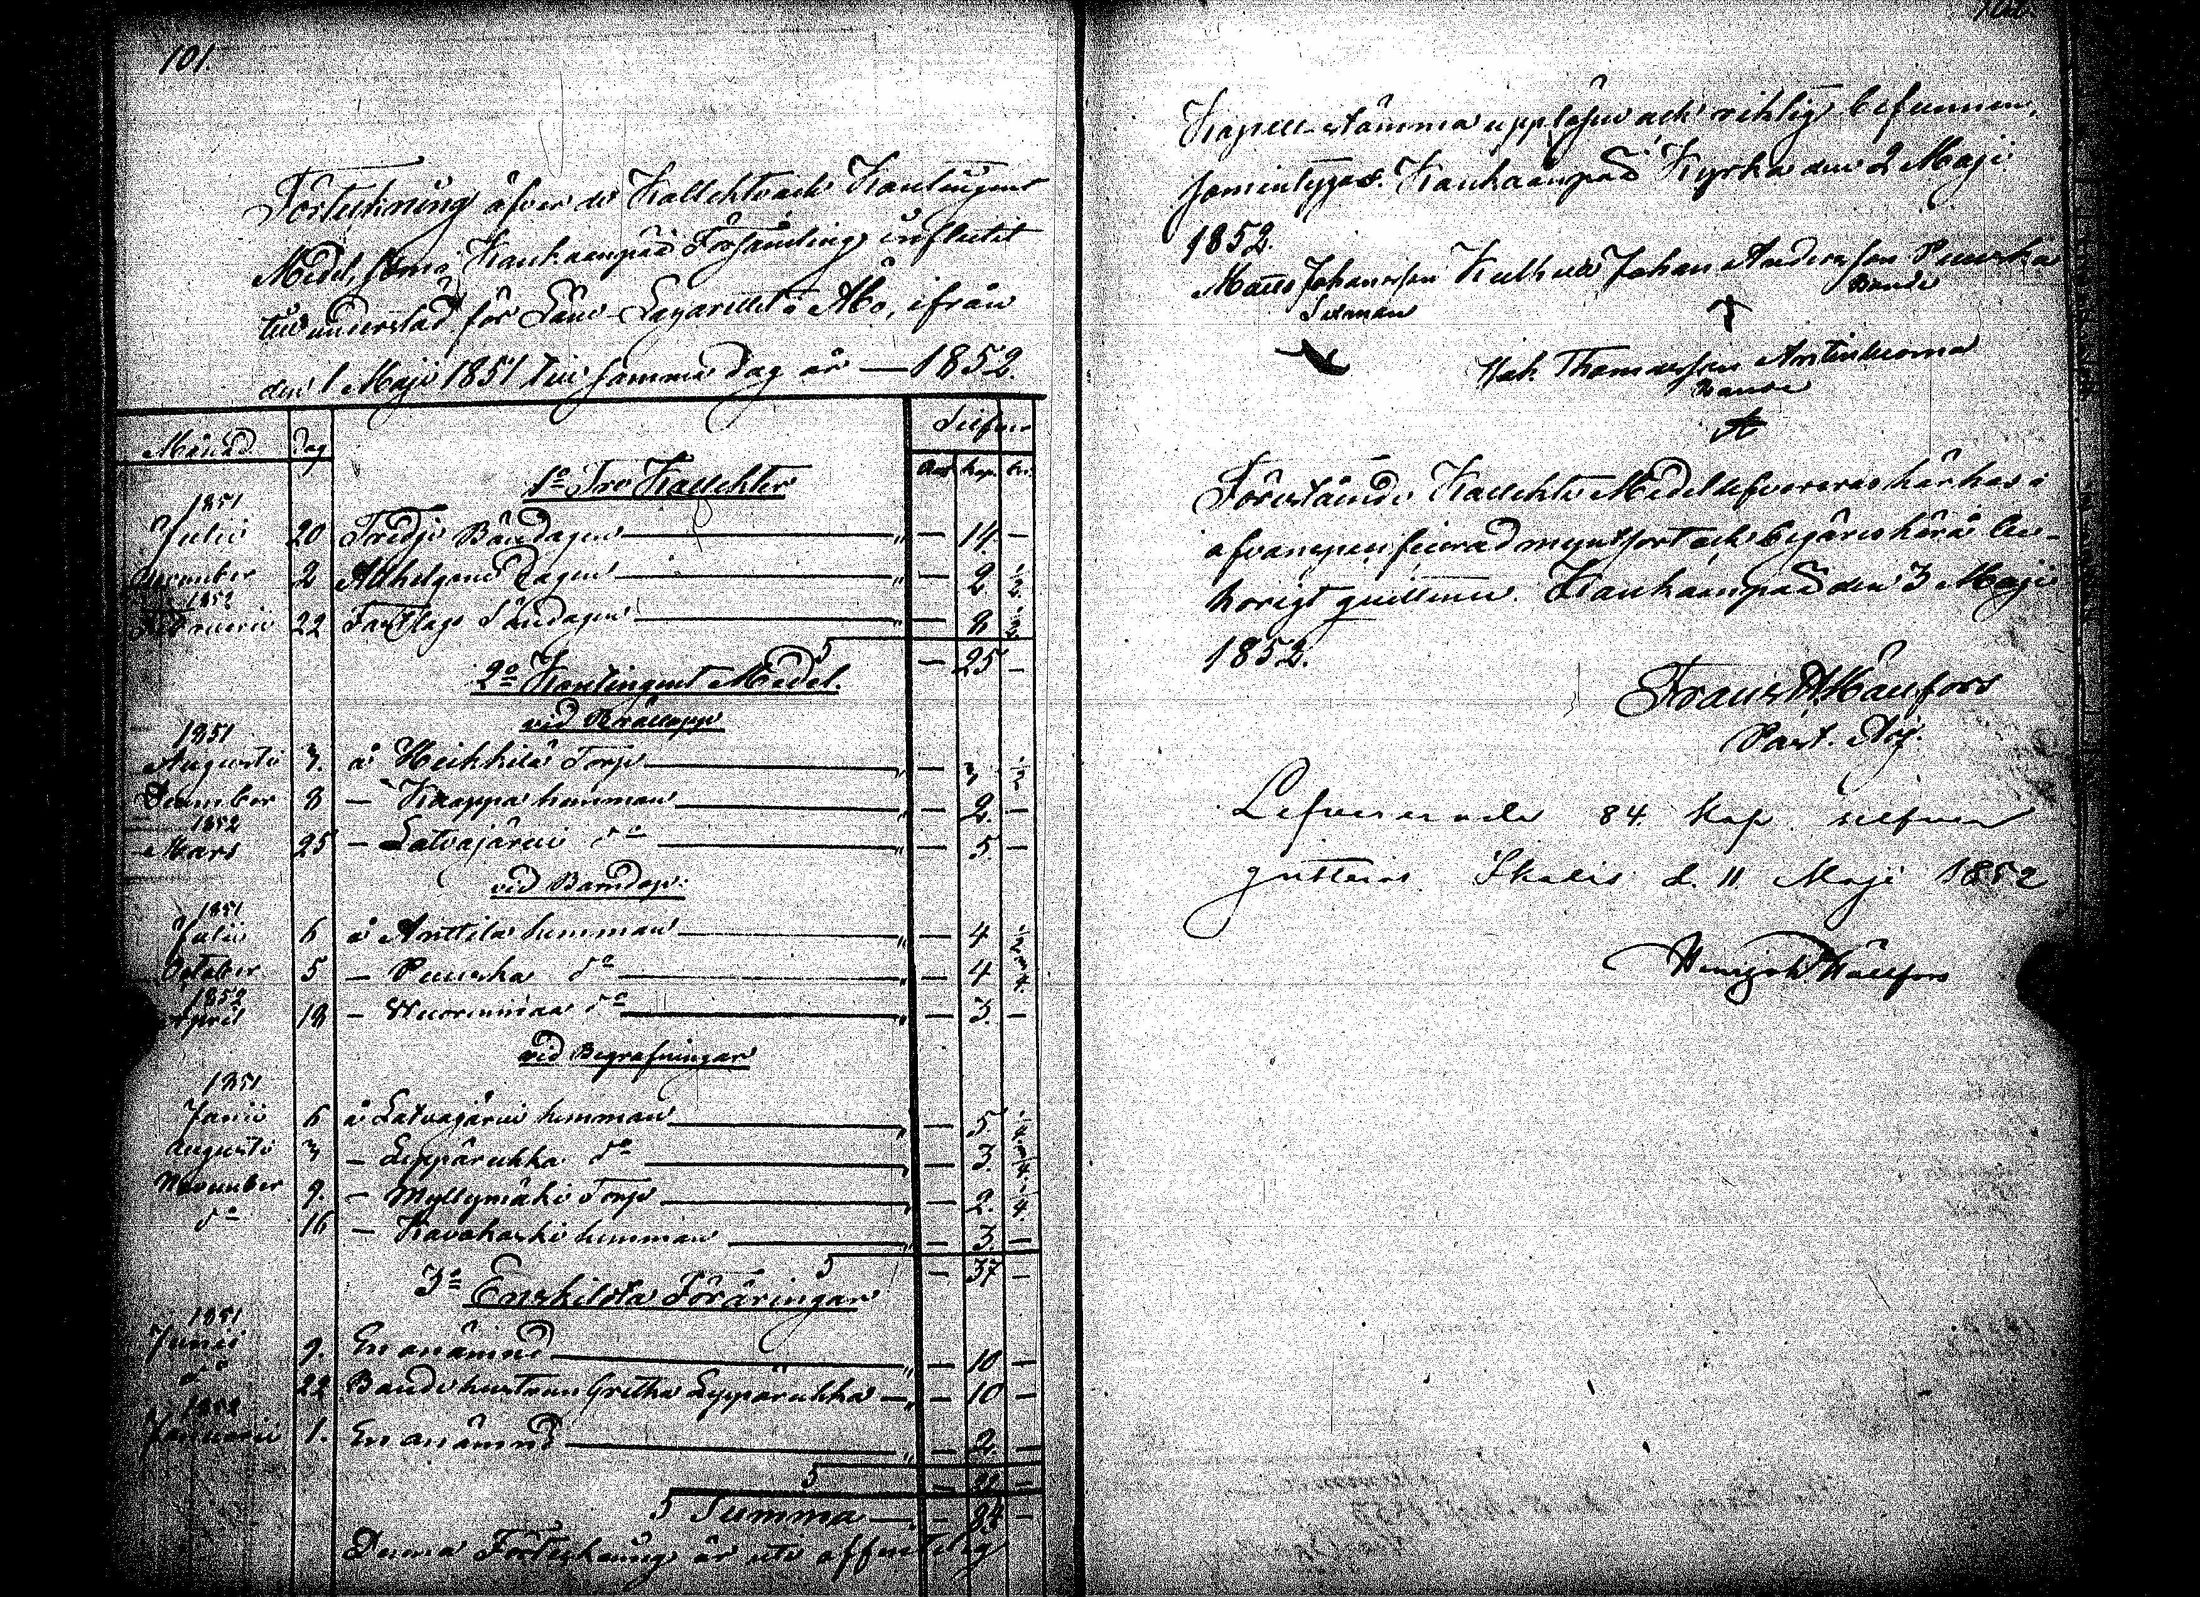 101.
Förteckning öfver de Kollekts och Kontingent
Medel, som i Kankaanpää Församling influtit
till understöd för Läns-Lazarettet i Åbo, ifrån
den 1 Maji 1851 till samma dag år — 1852.
Månad. Dag Silfver
Rub. Kop. 
1º Tre Kollekter
1851
Julii 20 Tredje Böndagen — 14. —
November 2 Allhelgona Dagen — 2 1/2
1852
Februarii 22 Fastlags Söndagen — 8 1/2
S — 25 —
2º Kontingent Medel.
vid Bröllopp
1851
Augusti 3. å Heikkilä Torp — 3 1/2
December 8 — Knappa hemman — 2. —
1852
Mars 25 — Latvajärvi dº — 5. —
vid Barndop:
1851
Julii 6 å Anttila hemman — 4 1/2
October 5 — Punska dº — 4 3/4
1852
April 18 — Wuorenmaa dº — 3. —
vid Begrafningar
1851
Junii 6 å Latvajärvi hemman — 5
Augusti 3 — Leppärukka dº — 3. 3/4
November 9. — Myllymäki Torp — 2. 1/4
dº 16 — Kovakoski hemman — 3. —
S — 37 —
3º Enskilda Föräringar
1851
Junii 9. En onämnd — 10 —
dº 22 Bondehustrun Gretha Leppärukka — 10 —
1852
Januarii 1. En onämnd — 2. —
S — 22 —
S Summa — 84 —
Denna Förteckning är uti offentelig
Kapell-stämma uppläsen och riktig befunnen,
som intygas. Kankaanpää Kyrka den 2 Maji
1852.
Matts Johansson Johan Andersson Punska
Sexman Bonde
Thomasson
Bonde
Förestående Kollekts Medel lefvereras härhos i
ofvanspecificerad myntsort och begäres härå be-
hörigt quittence. Kankaanpää den 3 Maji
1852.
Frans Hällfors
Past. Adj.
Lefvererade 84. Kop. silfver
quitteras. Ikalis d. 11. Maji 1852
Hällfors